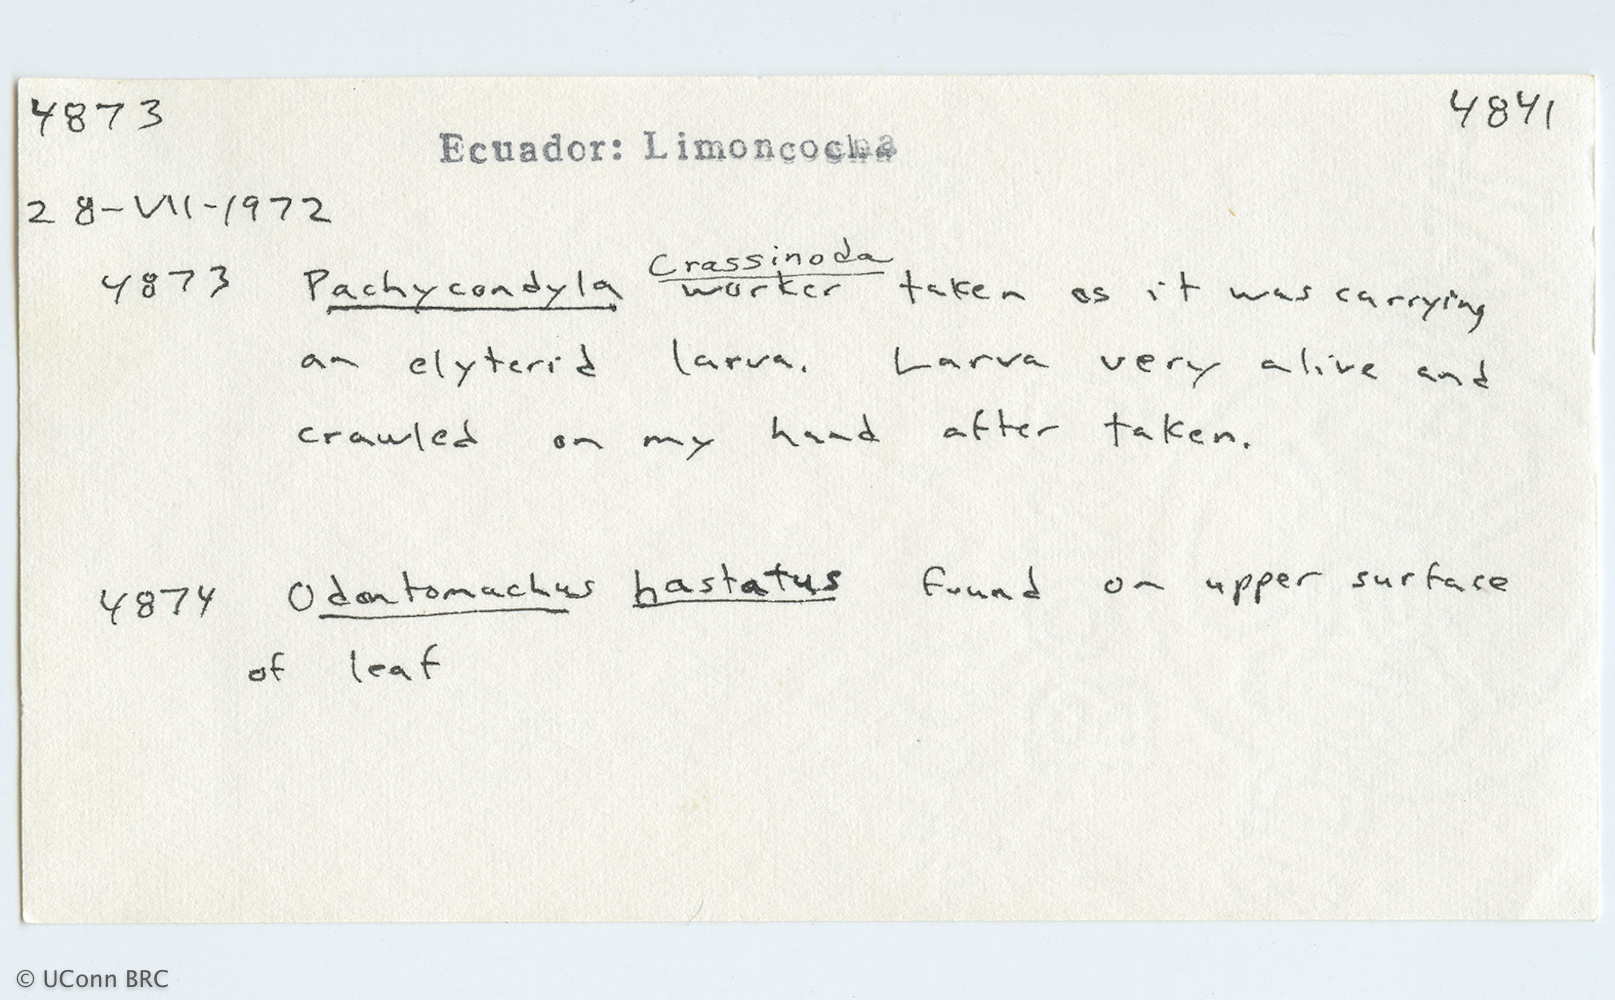 4873 4841
Ecuador: Limoncocha
28-VII-1972
Crassinoda
4873 Pachycondyla worker taken as it was carrying
an elyterid larva. Larva very alive and
crawled on my hand after taken.
4874 Odontomachus hastatus found on upper surface
of leaf
© UConn BRC